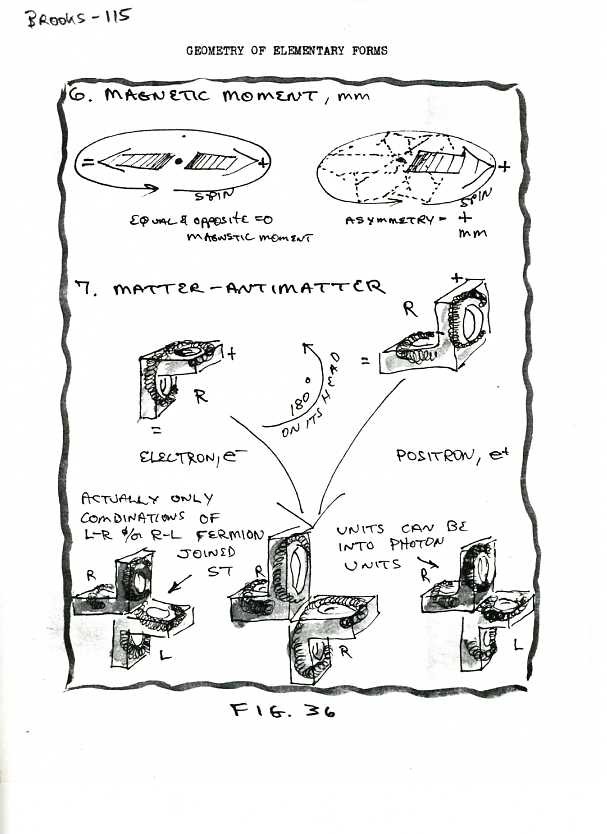 BROOKS-115
GEOMETRY OF ELEMENTARY FORMS
6. MAGNETIC MOMENT, mm
= +
SPIN
EQUAL & OPPOSITE = 0
MAGNETIC MOMENT
+
SPIN
ASYMMETRY = +
mm
7. MATTER-ANTIMATTER
+
R
=
+
R
=
180°
ON ITS HEAD
ELECTRON, e-
POSITRON, e+
ACTUALLY ONLY
COMBINATIONS OF
L-R &/OR R-L FERMION
JOINED
ST
UNITS CAN BE
INTO PHOTON
UNITS
R
L
R
R
R
L
FIG. 36